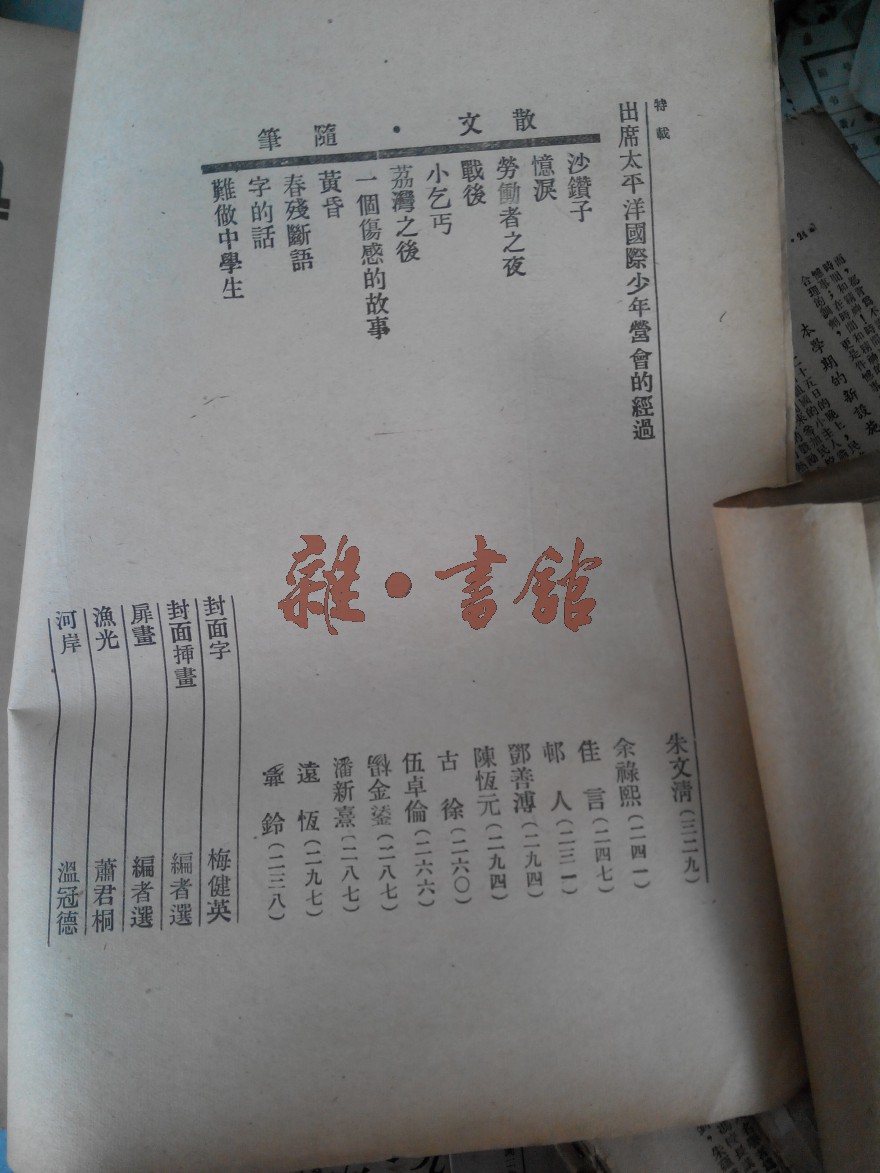 特載
出席太平洋國際少年營會的經過 朱文清(三二九)
散文・隨筆
沙鑽子 余祿熙(二四一)
憶淚 佳言(二四七)
勞働者之夜 邨人(二三一)
戰後 鄧善溥(二九四)
小乞丐 陳恆元(二九四)
荔灣之後 古徐(二六〇)
一個傷感的故事 伍卓倫(二六六)
黃昏 金鎏(二八七)
春殘斷語 潘新熹(二八七)
字的話 遠恆(二九七)
難做中學生 鈴(二三八)
封面字 梅健英
封面揷畫 編者選
扉畫 編者選
漁光 蕭君桐
河岸 溫冠德
雜・書館
本學期的新設施